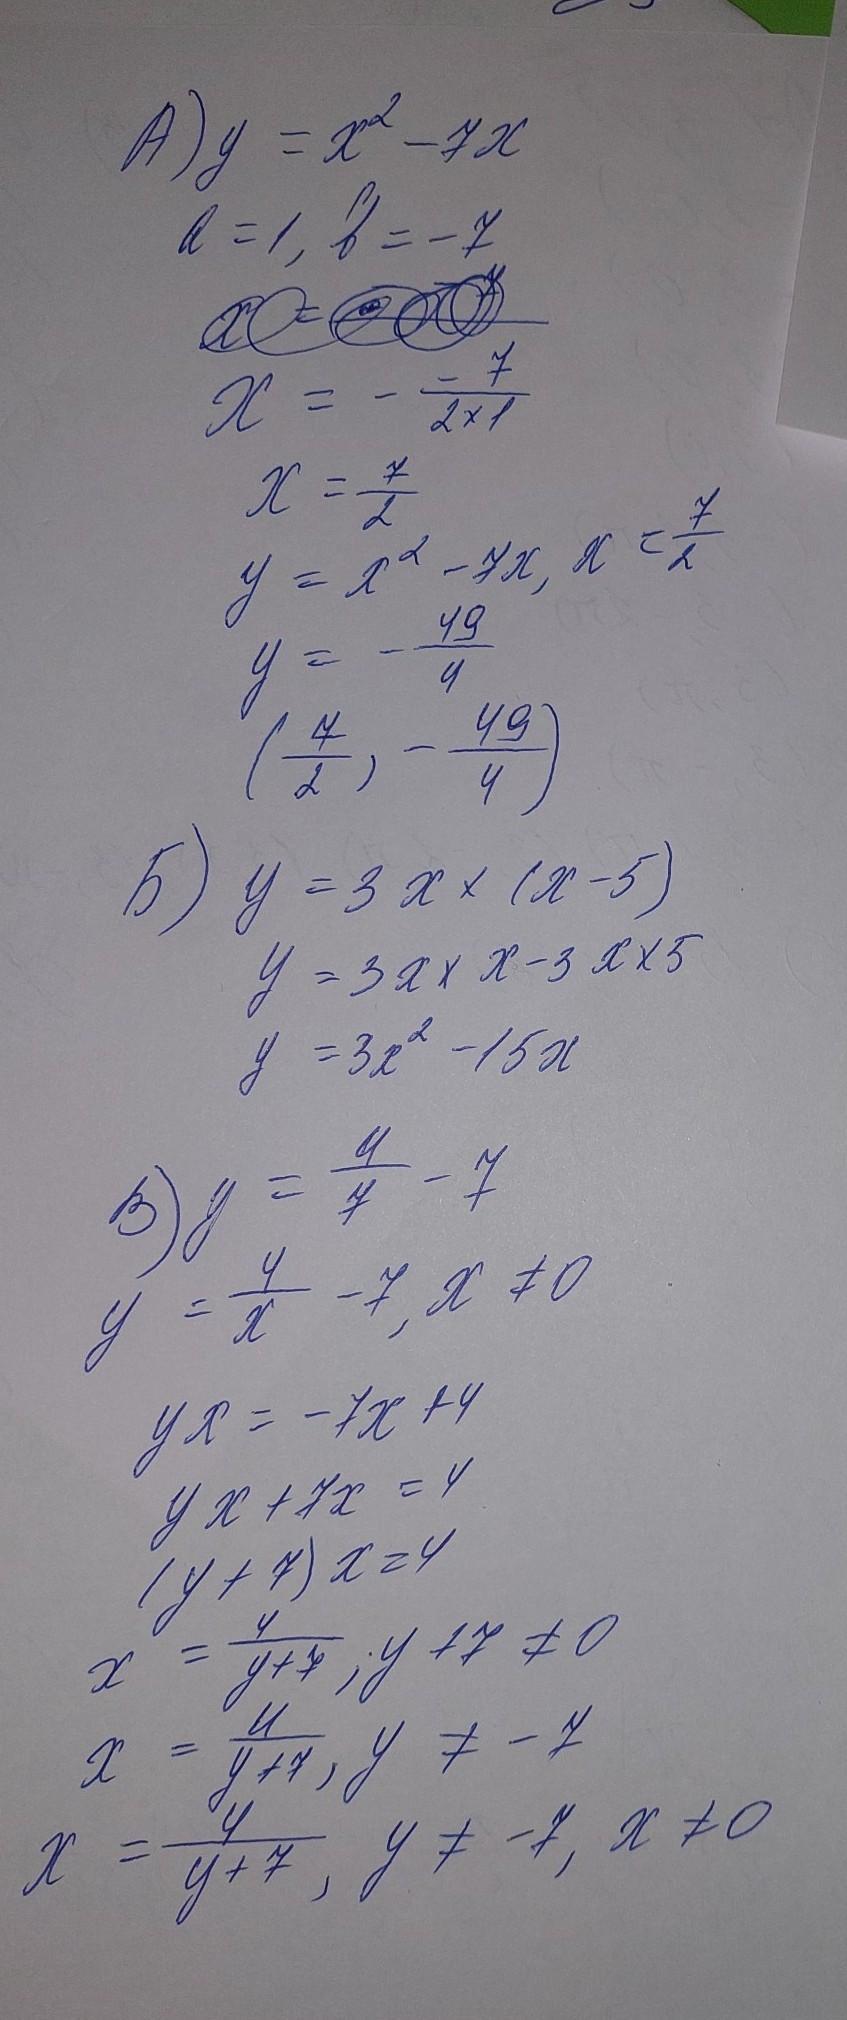 А) y = x² - 7x
a = 1, b = -7
x = - -7/(2×1)
x = 7/2
y = x² - 7x, x = 7/2
y = - 49/4
(7/2, - 49/4)
Б) y = 3x × (x - 5)
y = 3x × x - 3x × 5
y = 3x² - 15x
В) y = 4/7 - 7
y = 4/x - 7, x ≠ 0
yx = -7x + 4
yx + 7x = 4
(y + 7)x = 4
x = 4/(y+7), y + 7 ≠ 0
x = 4/(y+7), y ≠ -7
x = 4/(y+7), y ≠ -7, x ≠ 0